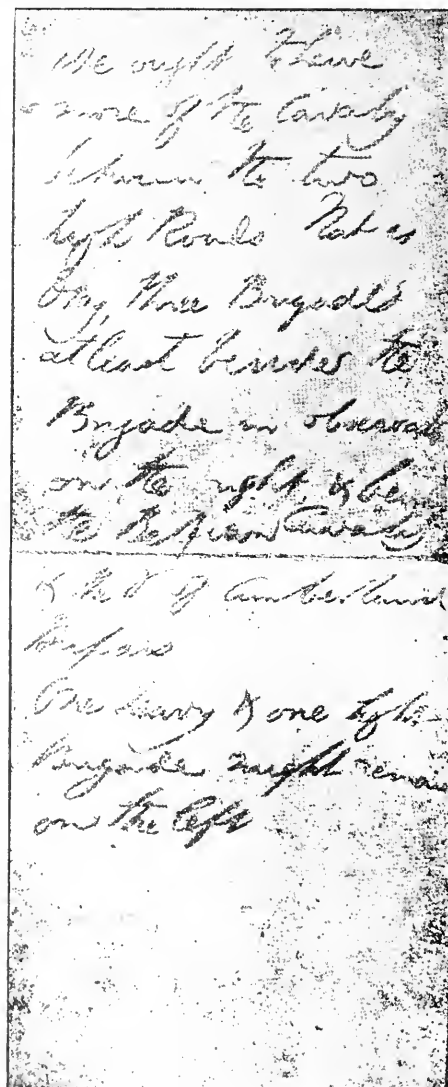 We ought to have
more of the Cavalry
between the two
high Roads That is
to say, Three Brigades
at least besides the
Brigade in observat
on the right, & besi
the Belgian Cavalry
& the D of Cumberland
Hussars
One heavy & one light
Brigade might remai
on the left